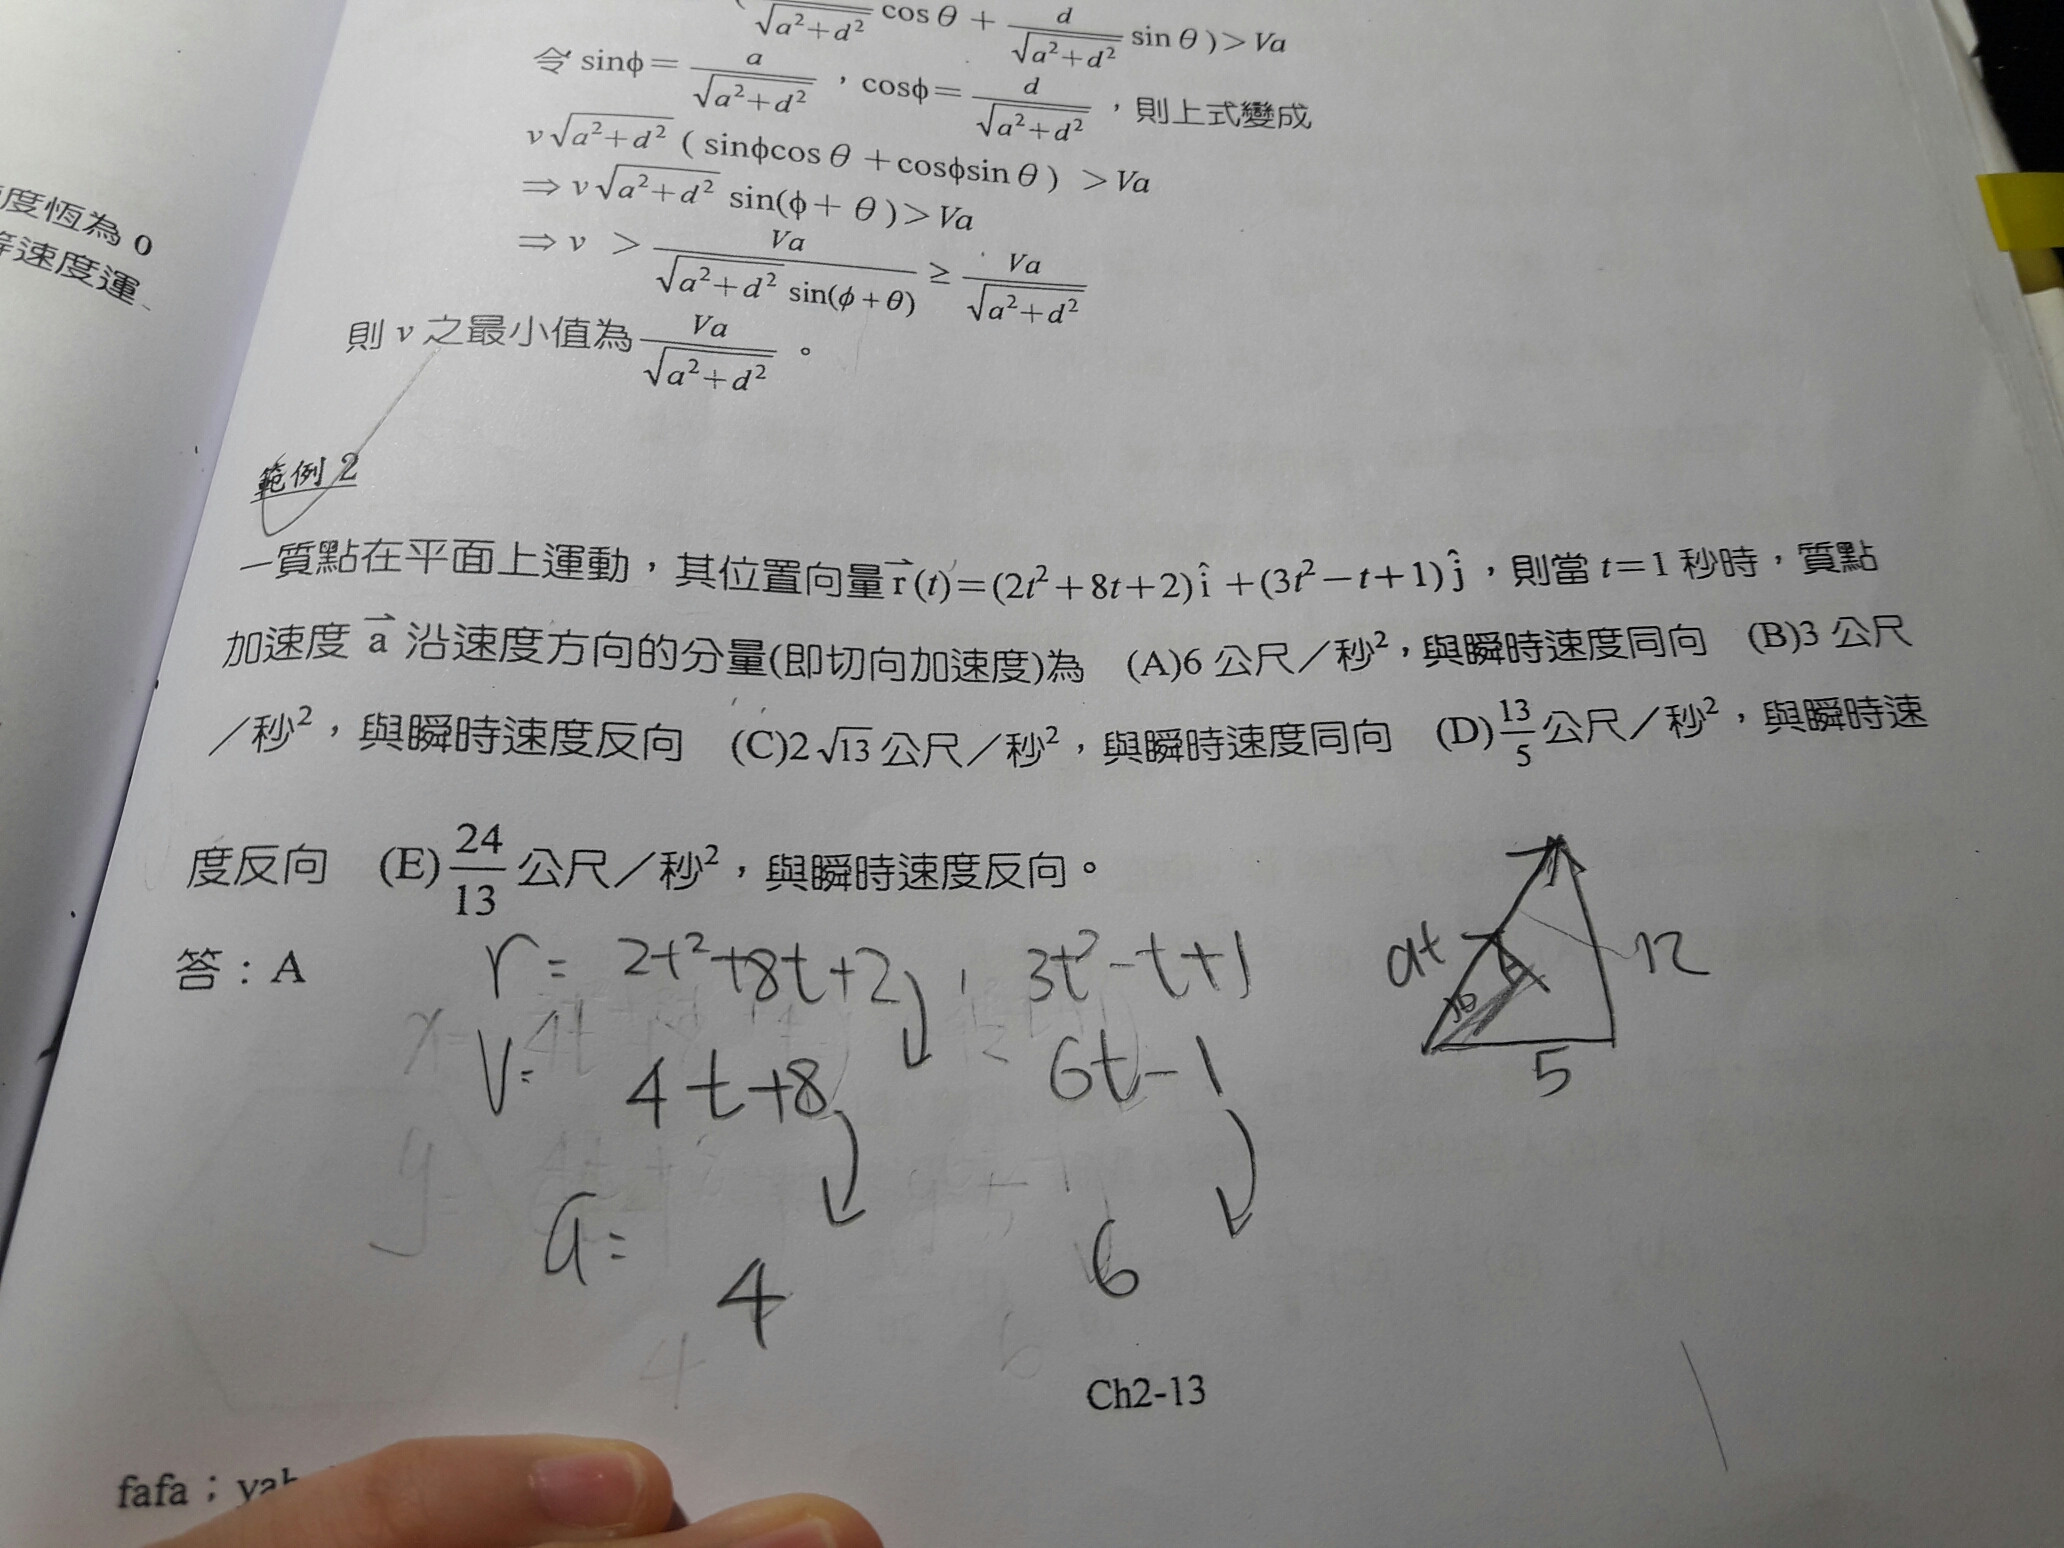 √a²+d² cosθ + d/√a²+d² sinθ )> Va
令 sinϕ= a/√a²+d² ，cosϕ= d/√a²+d² ，則上式變成
v√a²+d² ( sinϕcosθ +cosϕsinθ ) >Va
⇒ v√a²+d² sin(ϕ+ θ )> Va
⇒ v > Va/√a²+d² sin(ϕ+θ) ≥ Va/√a²+d²
則 v 之最小值為 Va/√a²+d² 。
度恆為 0
速度運
範例 2
一質點在平面上運動，其位置向量 r⃗(t)=(2t²+8t+2)î +(3t²−t+1)ĵ，則當 t=1 秒時，質點
加速度 a⃗ 沿速度方向的分量(即切向加速度)為 (A)6 公尺／秒²，與瞬時速度同向 (B)3 公尺
／秒²，與瞬時速度反向 (C)2√13 公尺／秒²，與瞬時速度同向 (D)13/5 公尺／秒²，與瞬時速
度反向 (E)24/13 公尺／秒²，與瞬時速度反向。
答：A
r= 2t²+8t+2 , 3t²-t+1
V= 4t+8 6t-1
a= 4 6
at
12
5
4 6
Ch2-13
fafa；